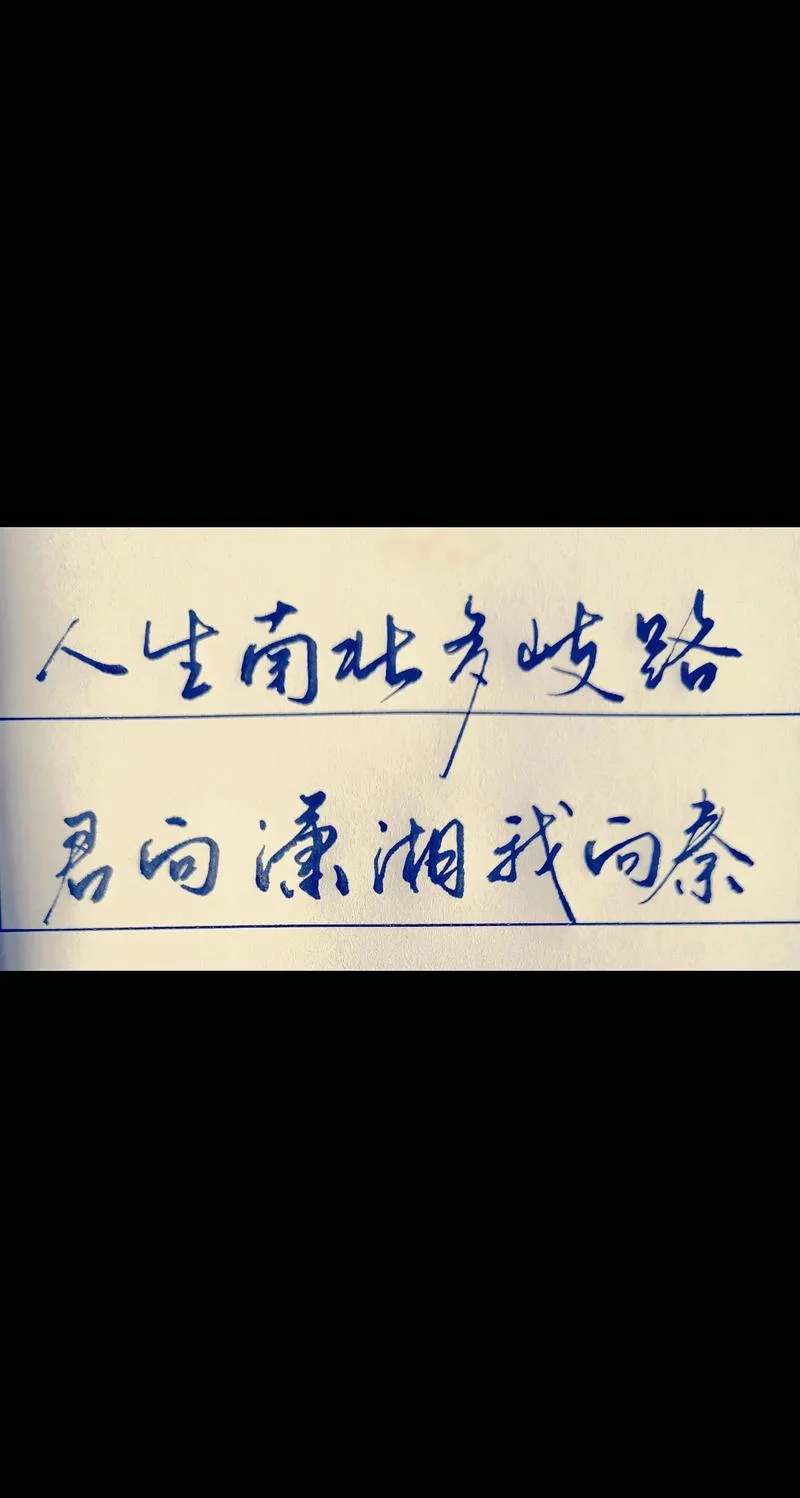 人生南北多岐路
君向潇湘我向秦